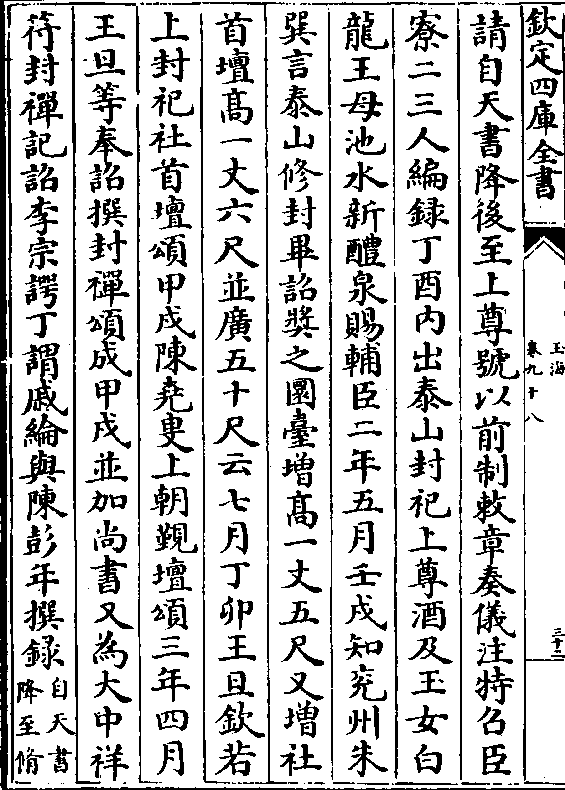 欽定四庫全書
玉海
卷九十八
三十二
請自天書降後至上尊號以前制敕章奏儀注特召臣
寮二三人編録丁酉内出泰山封祀上尊酒及玉女白
龍王母池水新醴泉賜輔臣二年五月壬戌知兖州朱
巽言泰山修封畢詔奬之圜臺増髙一丈五尺又増社
首壇髙一丈六尺並廣五十尺云七月丁卯王旦欽若
上封祀社首壇頌甲戍陳堯叟上朝覲壇頌三年四月
王旦等奉詔撰封禪頌成甲戍並加尚書又為大中祥
符封禪記詔李宗諤丁謂戚綸與陳彭年撰録自天書
降至脩